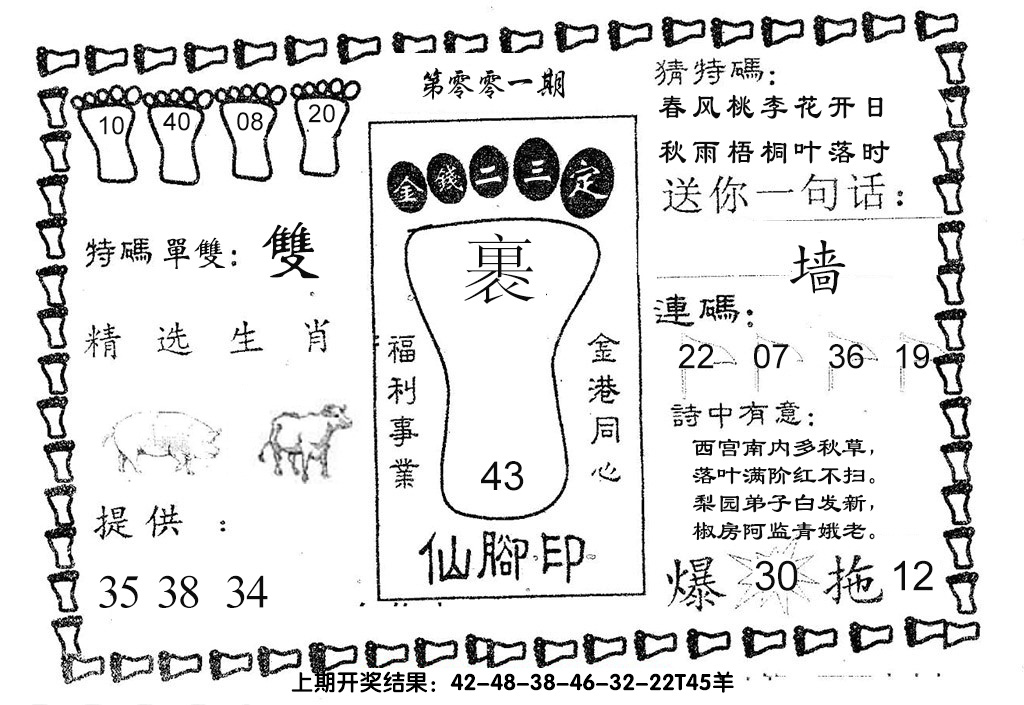 第零零一期
10 40 08 20
特碼單雙：雙
精选生肖
提供：
35 38 34
金錢二三定
裹
福利事業
金港同心
43
仙腳印
猜特碼：
春风桃李花开日
秋雨梧桐叶落时
送你一句话：
墙
連碼：
22 07 36 19
詩中有意：
西宫南内多秋草，
落叶满阶红不扫。
梨园弟子白发新，
椒房阿监青娥老。
爆 30 拖 12
上期开奖结果：42-48-38-46-32-22T45羊